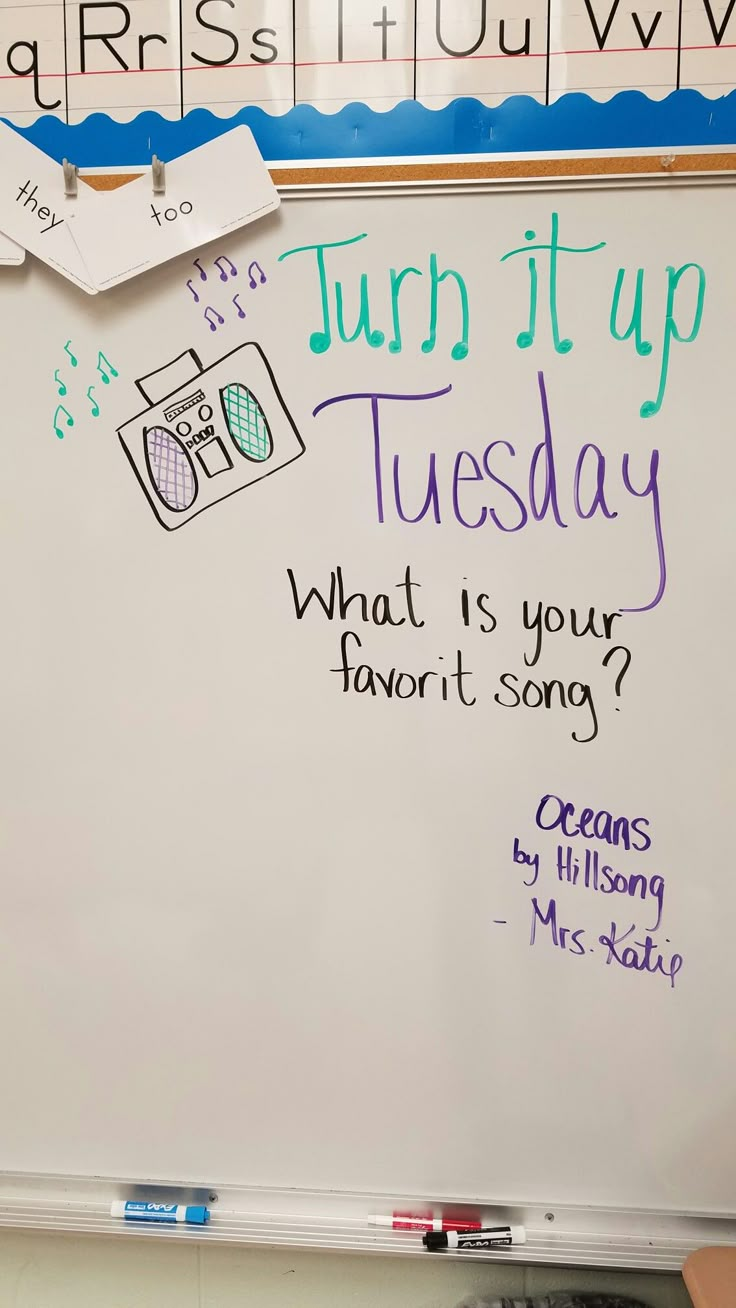 q Rr Ss Tt Uu Vv W
they
too
Turn it up
Tuesday
What is your
favorit song?
Oceans
by Hillsong
- Mrs. Katie
EXPO